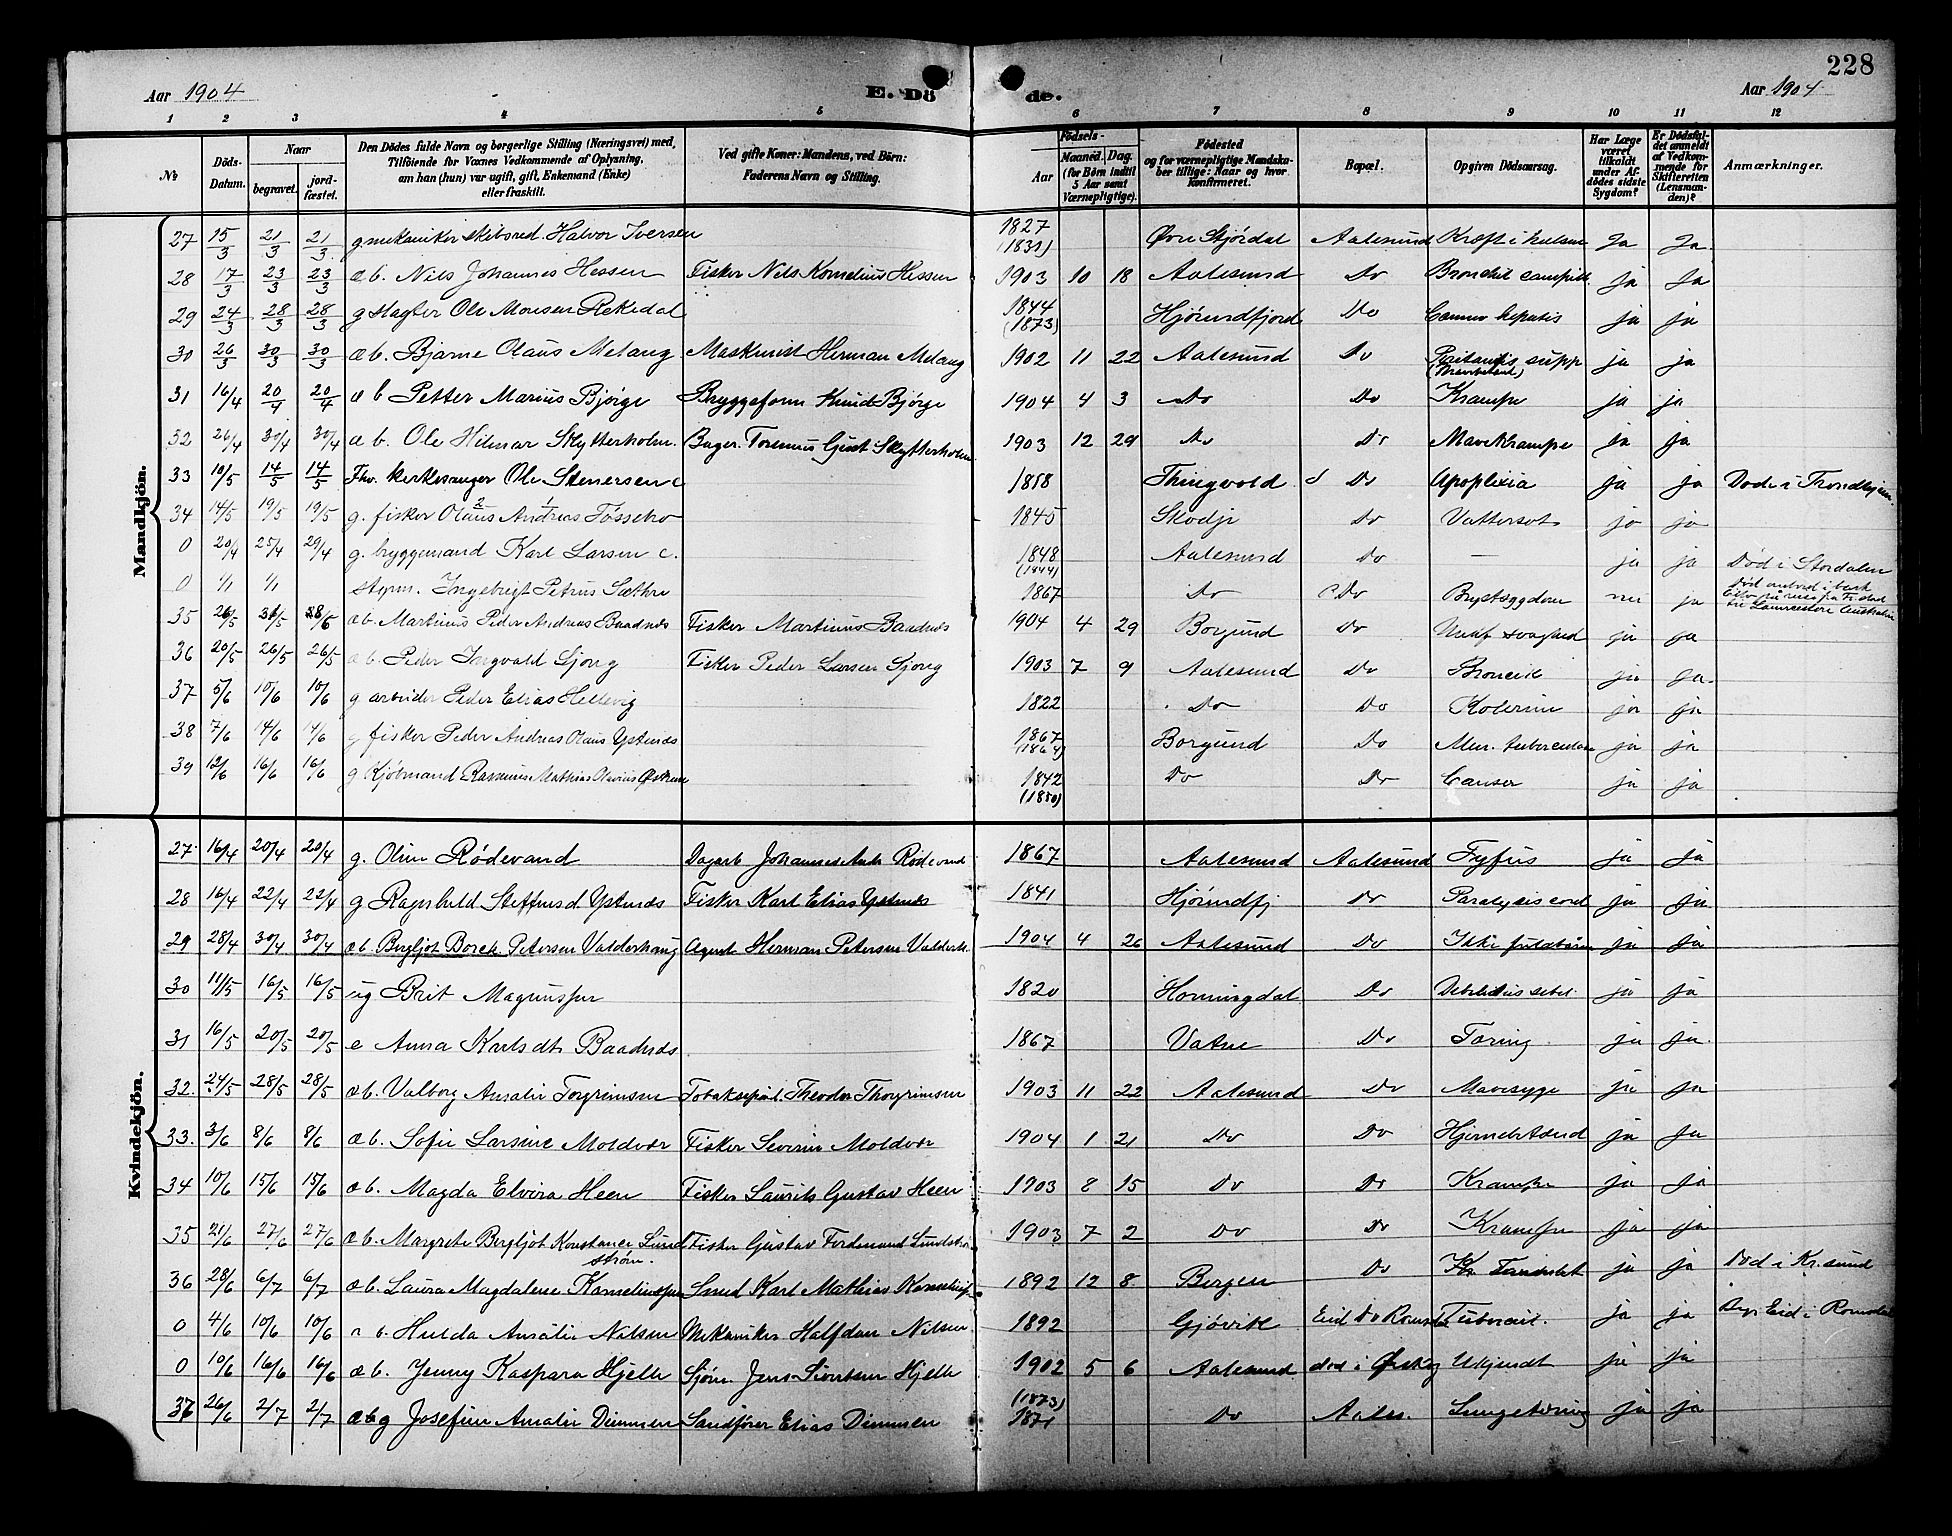 228
Aar 1904
E. Dö de.
Aar 1904
1 2 3 4 5 6 7 8 9 10 11 12
№
Döds-Datum.
Naar
begravet.
jordfæstet.
Den Dödes fulde Navn og borgerlige Stilling (Næringsvei) med, Tilföiende for Voxnes Vedkommende af Oplysning, om han (hun) var ugift, gift, Enkemand (Enke) eller fraskilt.
Ved gifte Koner: Mandens, ved Börn: Faderens Navn og Stilling.
Födsels-
Aar
Maaned. Dag.
(for Börn indtil 5 Aar samt Værnepligtige).
Födested og for værnepligtige Mandskaber tillige: Naar og hvor konfirmeret.
Bopæl.
Opgiven Dödsaarsag.
Har Læge været tilkaldt under Afdödes sidste Sygdom?
Er Dödsfaldet anmeldt af Vedkommende for Skifteretten (Lensmanden)?
Anmærkninger.
Mandkjön.
27 15/3 21/3 21/3 g. mekaniker skibsred. Halvor Iversen 1827 (1831) Øvre Stjørdal Aalesund Kræft i Ja Ja.
28 17/3 23/3 23/3 æb. Nils Johannes Hessen Fisker Nils Kornelius Hessen 1903 10 18 Aalesund Do ja Ja
29 24/3 28/3 28/3 g slagter Ole Monsen Rekedal 1844 (1873) Hjørundfjord Do hepatis ja ja
30 26/3 30/3 30/3 æb. Bjarne Olaus Melang Maskinist Herman Melang 1902 11 22 Aalesund Do ja ja
31 16/4 20/4 20/4 æb Petter Marius Bjørge Bryggeform Knud Bjørge 1904 4 3 Do Do Krampe ja ja
32 26/4 30/4 30/4 æb. Ole Hilmar Skytterholm. Bager. Gust Skytterholm 1903 12 29 Do Do Mavekrampe ja ja
33 10/5 14/5 14/5 Fhv. kirkesanger Ole Stenersen c 1858 Thingvold Do Apoplexia ja ja Død i Trondhjem
34 14/5 19/5 19/5 g. fisker Olaus 2 Andreas 1 Fossebro 1845 Skodje Do Vattersot ja ja
0 20/4 25/4 29/4 g. bryggemand Karl Larsen c. 1848 (1844) Aalesund Do — ja ja Død i Stordalen
0 1/1 1/1 styrm. Ingebrigt Petrus Sæthre 1867 Do Do Brystsygdom nei ja Død ombord i bark
35 26/5 31/5 28/5 æb. Martinus Peder Andreas Baadnes Fisker Martinus Baadnes 1904 4 29 Borgund Do Medf svaghed ja ja
36 20/5 26/5 26/5 æb. Peder Ingvald Sjong Fisker Peder Larsen Sjong 1903 7 9 Aalesund Do ja Ja.
37 5/6 10/6 10/6 g arbeider Peder Elias Hellevig 1822 Do Do Kolerine ja ja
38 7/6 14/6 14/6 g fisker Peder Andreas Olaus Ystenes 1867 (1864) Borgund Do ja ja
39 12/6 16/6 16/6 g Kjøbmand Rasmus Mathias Olavius 1842 (1850) Do Do Canser ja ja
Kvindekjön.
27. 16/4 20/4 20/4 g. Oline Rødevand Dagarb Johannes Rødevand 1867 Aalesund Aalesund Tyfus ja Ja
28 16/4 22/4 22/4 g Ragnhild Steffensd Ystenes Fisker Karl Elias Ystenes 1841 Hjørundfj Do Paralysis cord ja ja
29 28/4 30/4 30/4 æb. Bergljot Borch. Petersen Valderhaug Agent Herman Petersen 1904 4 26 Aalesund Do Ikke fuldbåren ja ja
30 11/5 16/5 16/5 ug Brit Magnussen 1820 Horningdal Do ja ja
31 16/5 20/5 20/5 e Anna Karlsdt Baadnæs 1867 Vatne Do Tæring ja ja.
32. 24/5 28/5 28/5 æb. Valborg Amalie Torgrimsen Theodor Thorgrimsen 1903 11 22 Aalesund Do Mavesyge ja ja
33. 3/6 8/6 8/6 æb. Sofie Larsine Moldvær Fisker Severin Moldvær 1904 1 21 Do Do ja ja
34 10/6 15/6 15/6 æb. Magda Elvira Heen Fisker Laurits Gustav Heen 1903 8 15 Do Do Krampe ja ja
35 21/6 27/6 27/6 æb. Margrete Bergljot Konstance Lundstrøm. Fisker Gustav Ferdinand Lundstrø 1903 7 2 Do Do Krampe ja ja
36 28/6 6/7 6/7 æb. Laura Magdalene Korneliussen Smed Karl Mathias 1892 12 8 Bergen Do ja ja Død i Kr.sund
0 4/6 10/6 10/6 æb. Hulda Amalie Nilsen Mekaniker Halfdan Nilsen. 1892 Gjøvik Eid Do ja ja Eid i Romsdal
0 10/6 16/6 16/6 æb. Jenny Kaspara Hjelle Sjøm. Jens Hjelle 1902 5 6 Aalesund død i Ørskog Ukjendt ja ja
37 26/6 2/7 2/7 g Josefine Amalie Dimmen Sandfører Elias Dimmen (1873) 1871 Do Aales. Lungetæring ja ja